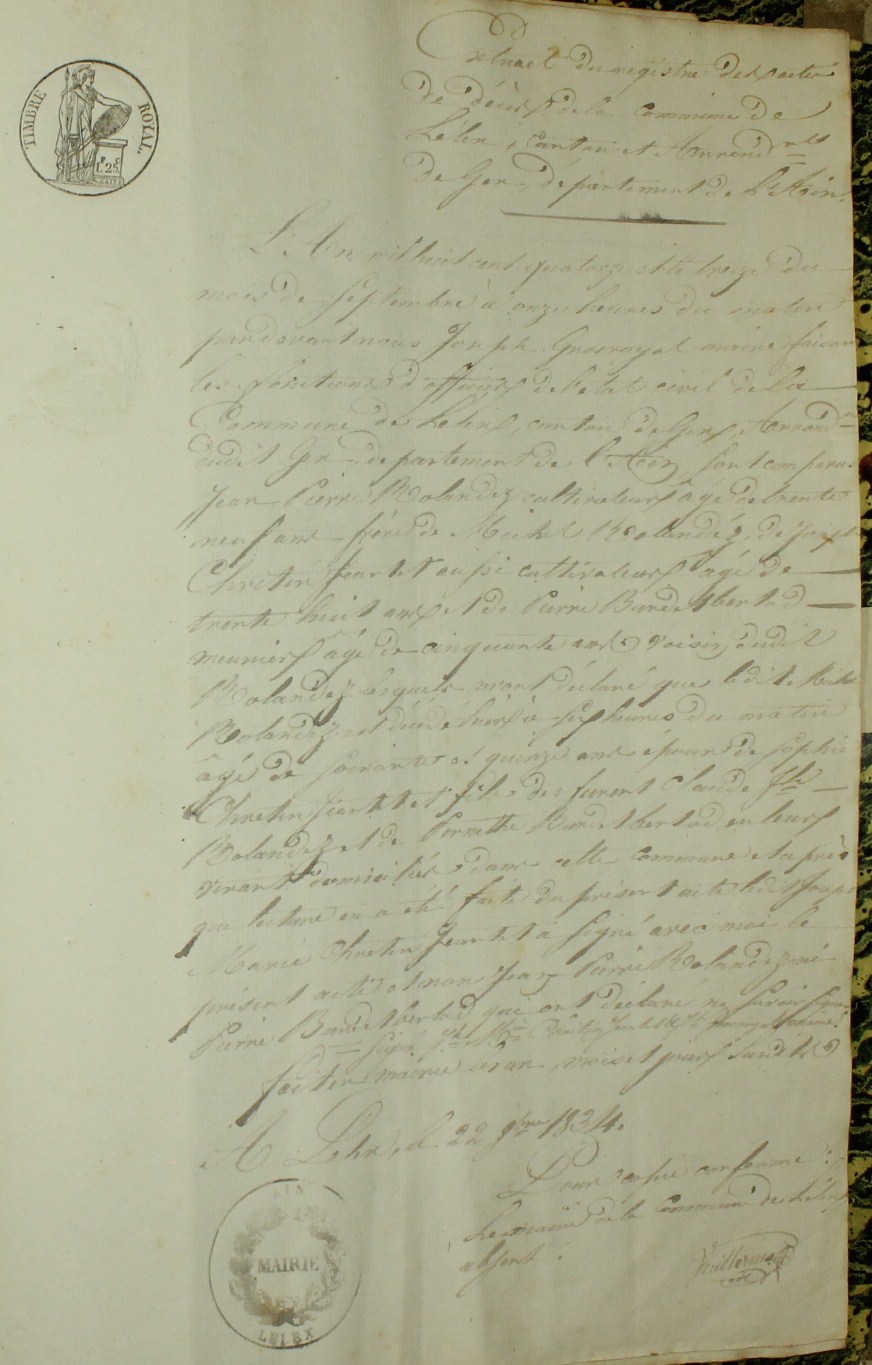 TIMBRE ROYAL.
F. C.
1. 25.
Extrait du registre des actes
de décès de la commune de
Lélex, canton et Arrond.
de Gex, département de l'Ain.
L'An mil huit cent quatorze et le treize du
mois de septembre à onze heures du matin
pardevant nous Joseph Grosroyat maire faisant
les fonctions d'officier de l'état civil de la
Commune de Lelex, canton de Gex, Arrond
dudit Gex département de l'Ain, sont comparu
Jean Pierre Rolandez cultivateur âgé de trente
neuf ans frère de Michel Rolandez, de Joseph
Chretin Jeantet aussi cultivateur âgé de
trente huit ans et de Pierre
meunier âgé de cinquante ans voisin dudit
Rolandez lesquels m'ont déclaré que ledit Michel
Rolandez est décédé hier à heures du matin
âgé de soixante et quinze ans époux de Sophie
Chretin Jeantet et fils des furent Claude
Rolandez et de Pernette en leurs
vivant domiciliés dans cette commune et après
que lecture en a été faite du présent acte ledit Joseph
Marie Chretin Jeantet a signé avec moi le
présent acte et non Jean Pierre Rolandez ni
Pierre qui ont déclaré ne savoir signer
signé Jh Mie Chretin Jeantet maire
fait en mairie les an, mois et jour susdits
A Lelex, le 22 9bre 1834.
Pour copie conforme :
Le maire de la Commune de Lelex
absent.
Vuillermoz
adjt
AIN
MAIRIE
LELEX